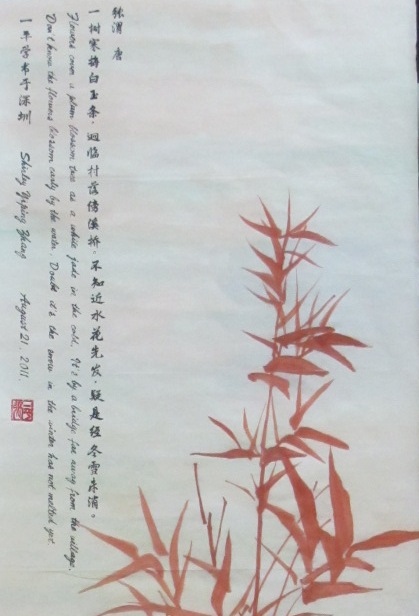 张渭 唐
一树寒梅白玉条，迴临村落傍溪桥。不知近水花先发，疑是经冬雪未消。
Flowers cover a plum blossom tree as a white jade in the cold. It's by a bridge far away from the village.
Don't know the flowers blossom early by the water. Doubt it's the snow in the winter has not melted yet.
一平 于深圳 Shirley Yiping Zhang August 21, 2011.